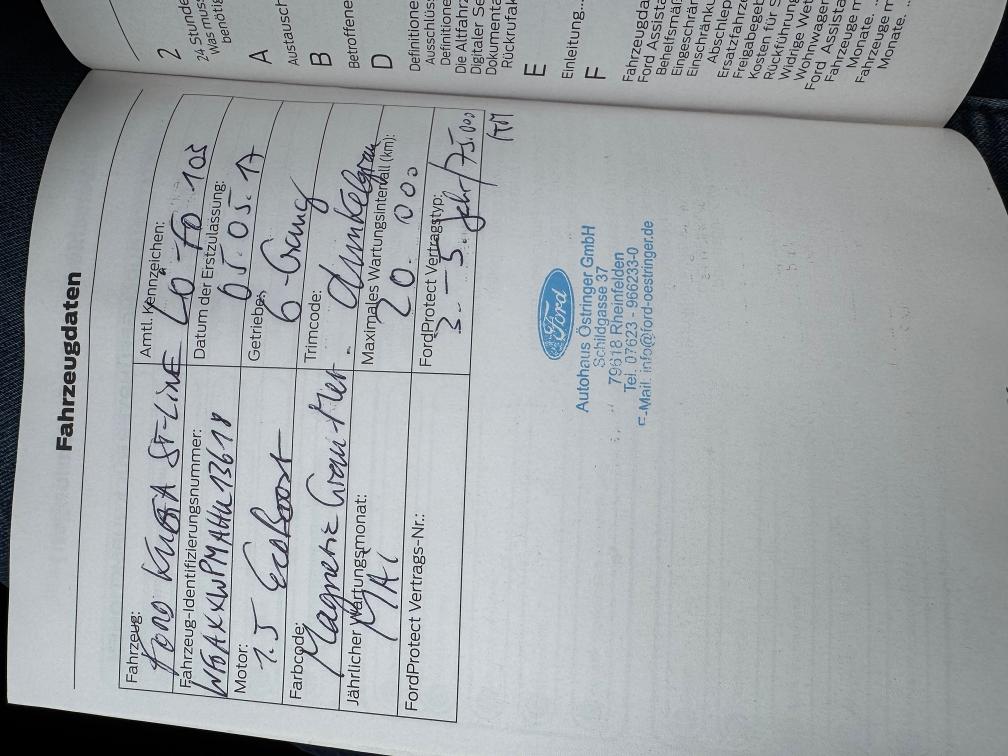 Fahrzeugdaten
Fahrzeug:
FORD KUGA ST-LINE
Amtl. Kennzeichen:
LÖ-FO 105
Fahrzeug-Identifizierungsnummer:
Datum der Erstzulassung:
05.05.17
Motor:
1.5 EcoBoost
Getriebe:
6-Gang
Farbcode:
Magnetic Grau-Met
Trimcode:
dunkelgrau
Jährlicher Wartungsmonat:
MAI
Maximales Wartungsintervall (km):
20.000
FordProtect Vertrags-Nr.:
FordProtect Vertragstyp:
3.-5. Jahr/75.000
KM
Ford
Autohaus Östringer GmbH
Schildgasse 37
79618 Rheinfelden
Tel. 07623 - 966233-0
E-Mail. info@ford-oestringer.de
2
24 Stunde
Was mus
benötig
A
Austausch
B
Betroffene
D
Definitione
Ausschlüss
Definitione
Die Altfahrz
Digitaler Se
Dokumenta
Rückrufak
E
Einleitung...
F
Fahrzeugda
Ford Assista
Behelfsmäß
Eingeschrän
Einschränku
Abschlep
Ersatzfahrze
Freigabegeb
Kosten für S
Rückführung
Widrige Wet
Wohnwagen
Ford Assista
Fahrzeuge m
Monate. ..
Fahrzeuge m
Monate. ..